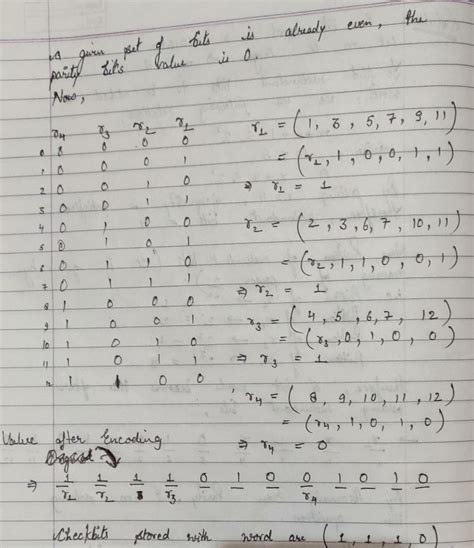 A given set of bits is already even, the
parity bit's value is 0.
Now,
r4 r3 r2 r1
0 0 0 0 0
1 0 0 0 1
2 0 0 1 0
3 0 0 1 1
4 0 1 0 0
5 0 1 0 1
6 0 1 1 0
7 0 1 1 1
8 1 0 0 0
9 1 0 0 1
10 1 0 1 0
11 1 0 1 1
12 1 1 0 0
r1 = (1, 3, 5, 7, 9, 11)
= (r1, 1, 0, 0, 1, 1)
⇒ r1 = 1
r2 = (2, 3, 6, 7, 10, 11)
= (r2, 1, 1, 0, 0, 1)
⇒ r2 = 1
r3 = (4, 5, 6, 7, 12)
= (r3, 0, 1, 0, 0)
⇒ r3 = 1
r4 = (8, 9, 10, 11, 12)
= (r4, 1, 0, 1, 0)
⇒ r4 = 0
Value after Encoding
⇒ 1 1 1 1 0 1 0 0 1 0 1 0
r1 r2 r3 r4
Checkbits stored with word are (1, 1, 1, 0)